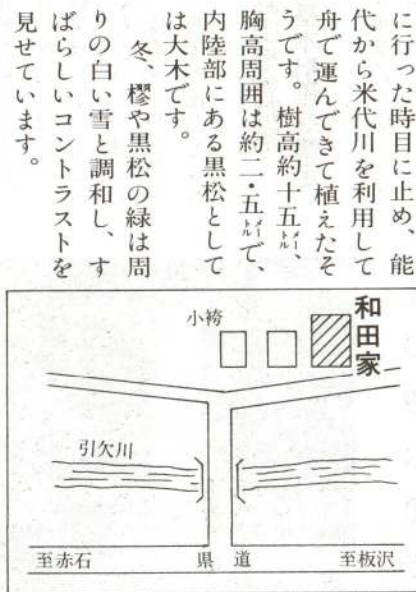 に行った時目に止め、能
代から米代川を利用して
舟で運んできて植えたそ
うです。樹高約十五㍍、
胸高周囲は約二・五㍍で、
内陸部にある黒松として
は大木です。
冬、欅や黒松の緑は周
りの白い雪と調和し、す
ばらしいコントラストを
見せています。
和田家
小袴
引欠川
至赤石
県道
至板沢